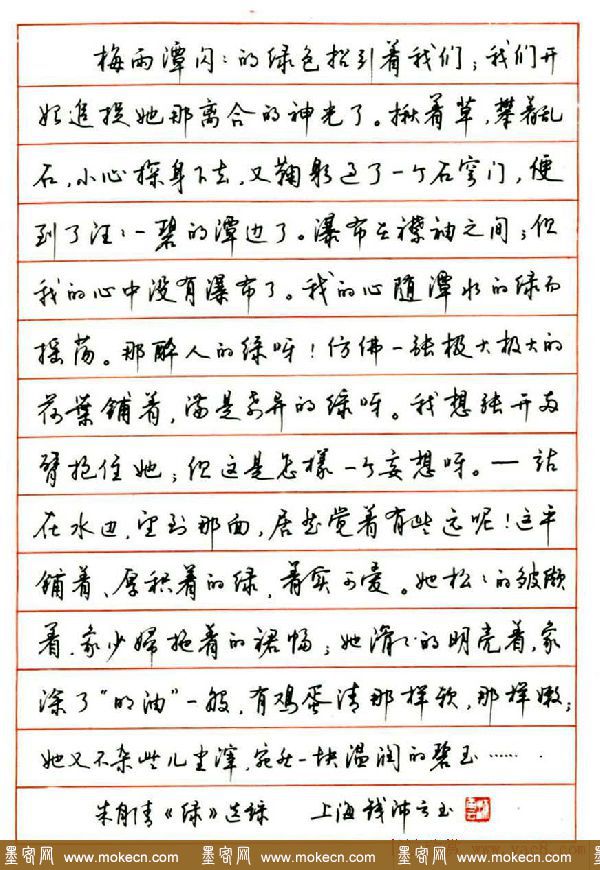 梅雨潭闪〻的绿色招引着我们；我们开
始追捉她那离合的神光了。揪着草，攀着乱
石，小心探身下去，又鞠躬过了一个石穹门，便
到了汪〻一碧的潭边了。瀑布在襟袖之间；但
我的心中没有瀑布了。我的心随潭水的绿而
摇荡。那醉人的绿呀！仿佛一张极大极大的
荷葉铺着，满是奇异的绿呀。我想张开两
臂抱住她；但这是怎樣一个妄想呀。—站
在水边，望到那面，居然觉着有些远呢！这平
铺着、厚积着的绿，着实可爱。她松〻的皱缬
着，象少婦拖着的裙幅；她滑〻的明亮着，象
涂了“明油”一般，有鸡蛋清那样软，那样嫩；
她又不杂些儿尘滓，宛然一块温润的碧玉……
朱自清《绿》选录 上海钱沛云书
墨客网 www.mokecn.com 墨客网 www.mokecn.com 墨客网 www.mokecn.com